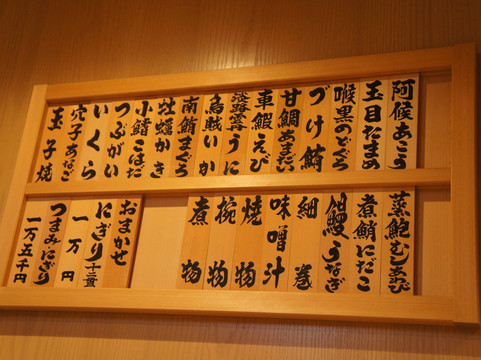 阿候あこう
玉目だまめ
喉黒のどぐろ
づけ鮪
甘鯛あまだい
車鰕えび
淡路雲うに
烏賊いか
南鮪まぐろ
牡蠣かき
小鰭こはだ
つぶがい
いくら
穴子あなご
玉子焼
蒸鮑むしあわび
煮鮹にだこ
鰻うなぎ
細巻
味噌汁
焼物
椀物
煮物
おまかせ
にぎり十二貫
一万円
つまみ・にぎり
一万五千円